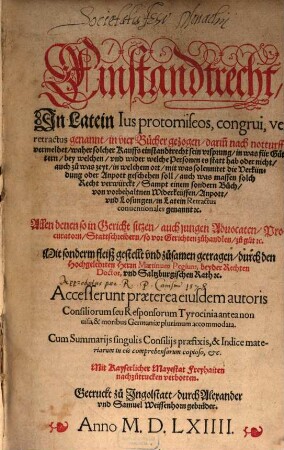 Societatis Jesu Monachij
Einstandtrecht/
In Latein Ius protomiseos, congrui, vel
retractus genannt/ in vier Bücher gezogen/ darin nach notturfft
vermeldet/ waher solcher Kauffs einstandtrecht sein vrsprung/ in was für Gü
tern/ bey welchen/ vnd wider welche Personen es statt hab oder nicht/
auch zů was zeyt/ in welchem ort/ mit was solennitet die Verkün
dung oder Anpot geschehen soll/ auch was massen solch
Recht verwürckt/ Sampt einem sondern Bůch/
von vorbehaltnen Widerkeüffen/ Anpot/
vnd Losungen/ in Latein Retractus
conuentionales genannt ꝛc.
Allen denen so in Gericht sitzen/ auch jungen Aduocaten/ Pro-
curatorn, Stattschreibern/ so vor Gerichten zůhandlen/ zů gůt ꝛc.
Mit sonderm fleiß gestellt vnd zůsamen getragen/ durch den
Hochgelehrten Herrn Martinum Pegium, beyder Rechten
Doctor, vnd Saltzburgischen Rath ꝛc.
Accesserunt præterea eiusdem autoris
Consiliorum seu Responsorum Tyrocinia antea non
uisa, & moribus Germaniæ plurimum accommodata.
Cum Summarijs singulis Consilijs præfixis, & Indice mate-
riarum in eis comprehensarum copioso, &c.
Mit Kayserlicher Mayestat Freyhaiten
nachzůtrucken verbotten.
Getruckt zů Ingolstatt/ durch Alexander
vnd Samuel Weissenhorn gebrüder.
Anno M. D. LXIIII.